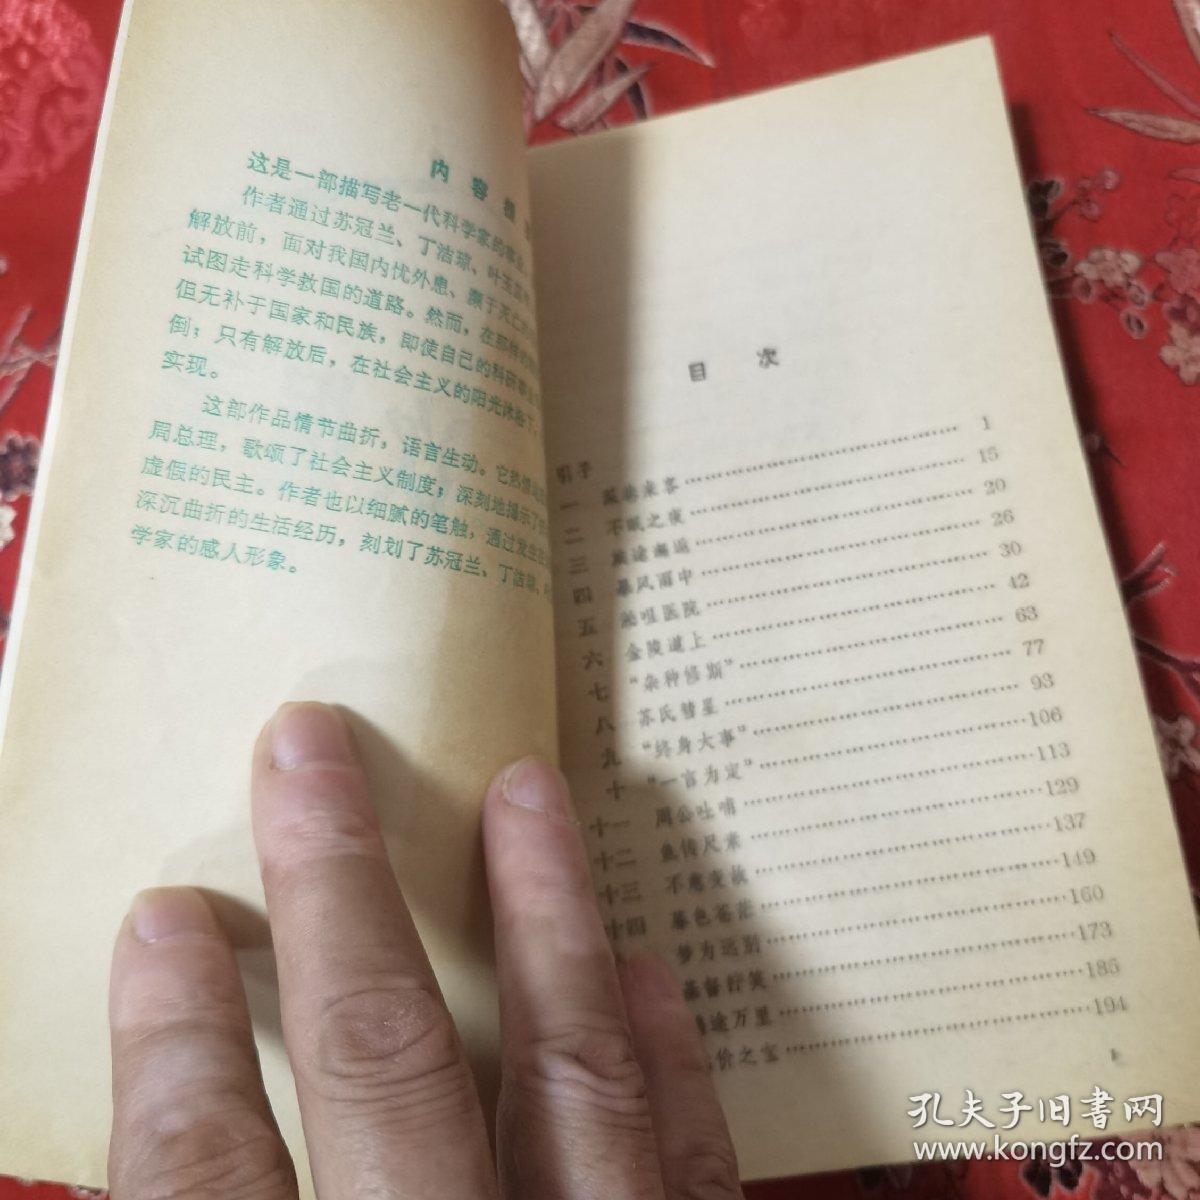 内 容
这是一部描写老一代科学家的事业
作者通过苏冠兰、丁洁琼、叶玉菡
解放前，面对我国内忧外患、濒于灭亡
试图走科学救国的道路。然而，在那样的
但无补于国家和民族，即使自己的科研事业
倒；只有解放后，在社会主义的阳光沐浴下，
实现。
这部作品情节曲折，语言生动。它热情地
周总理，歌颂了社会主义制度；深刻地揭示了
虚假的民主。作者也以细腻的笔触，通过发生在
深沉曲折的生活经历，刻划了苏冠兰、丁洁琼、
学家的感人形象。
目 次
引子 …… 1
一 来客 …… 15
二 不眠之夜 …… 20
三 旅途邂逅 …… 26
四 暴风雨中 …… 30
五 医院 …… 42
六 金陵道上 …… 63
七 “杂种修斯” …… 77
八 苏氏彗星 …… 93
九 “终身大事” …… 106
十 “一言为定” …… 113
十一 周公吐哺 …… 129
十二 鱼传尺素 …… 137
十三 不意变故 …… 149
十四 暮色苍茫 …… 160
梦为远别 …… 173
基督狞笑 …… 185
途万里 …… 194
价之宝
孔夫子旧书网
www.kongfz.com